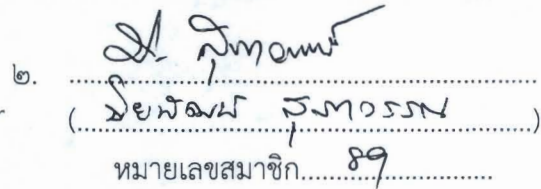 ๒.
(ปิยพัฒน์ สุภาวรรณ)
หมายเลขสมาชิก 89